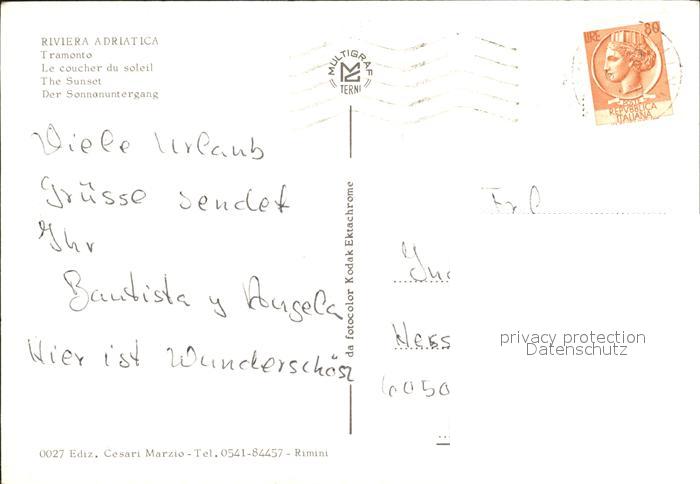 RIVIERA ADRIATICA
Tramonto
Le coucher du soleil
The Sunset
Der Sonnenuntergang
Viele Urlaub
Grüsse sendet
Ihr
Bautista y Angela
Hier ist Wunderschön
0027 Ediz. Cesari Marzio - Tel. 0541-84457 - Rimini
MULTIGRAF
TERNI
da fotocolor Kodak Ektachrome
LIRE 80
POSTE
REPVBBLICA
ITALIANA
Frl
Hess
6050
privacy protection
Datenschutz